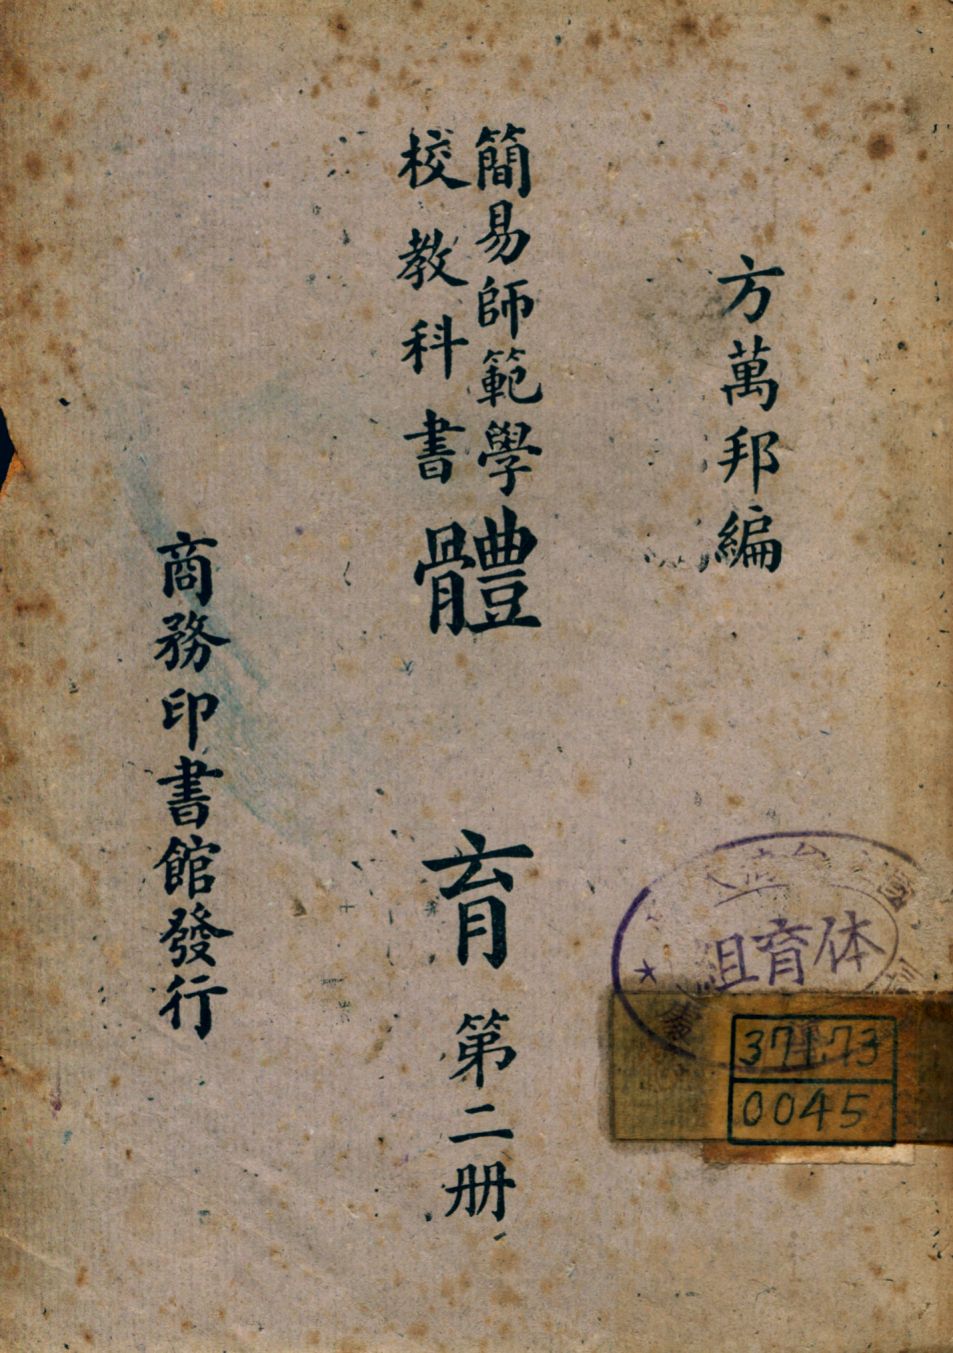 方萬邦編
簡易師範學
校教科書
體育 第二册
商務印書館發行
体育組
371.73
0045